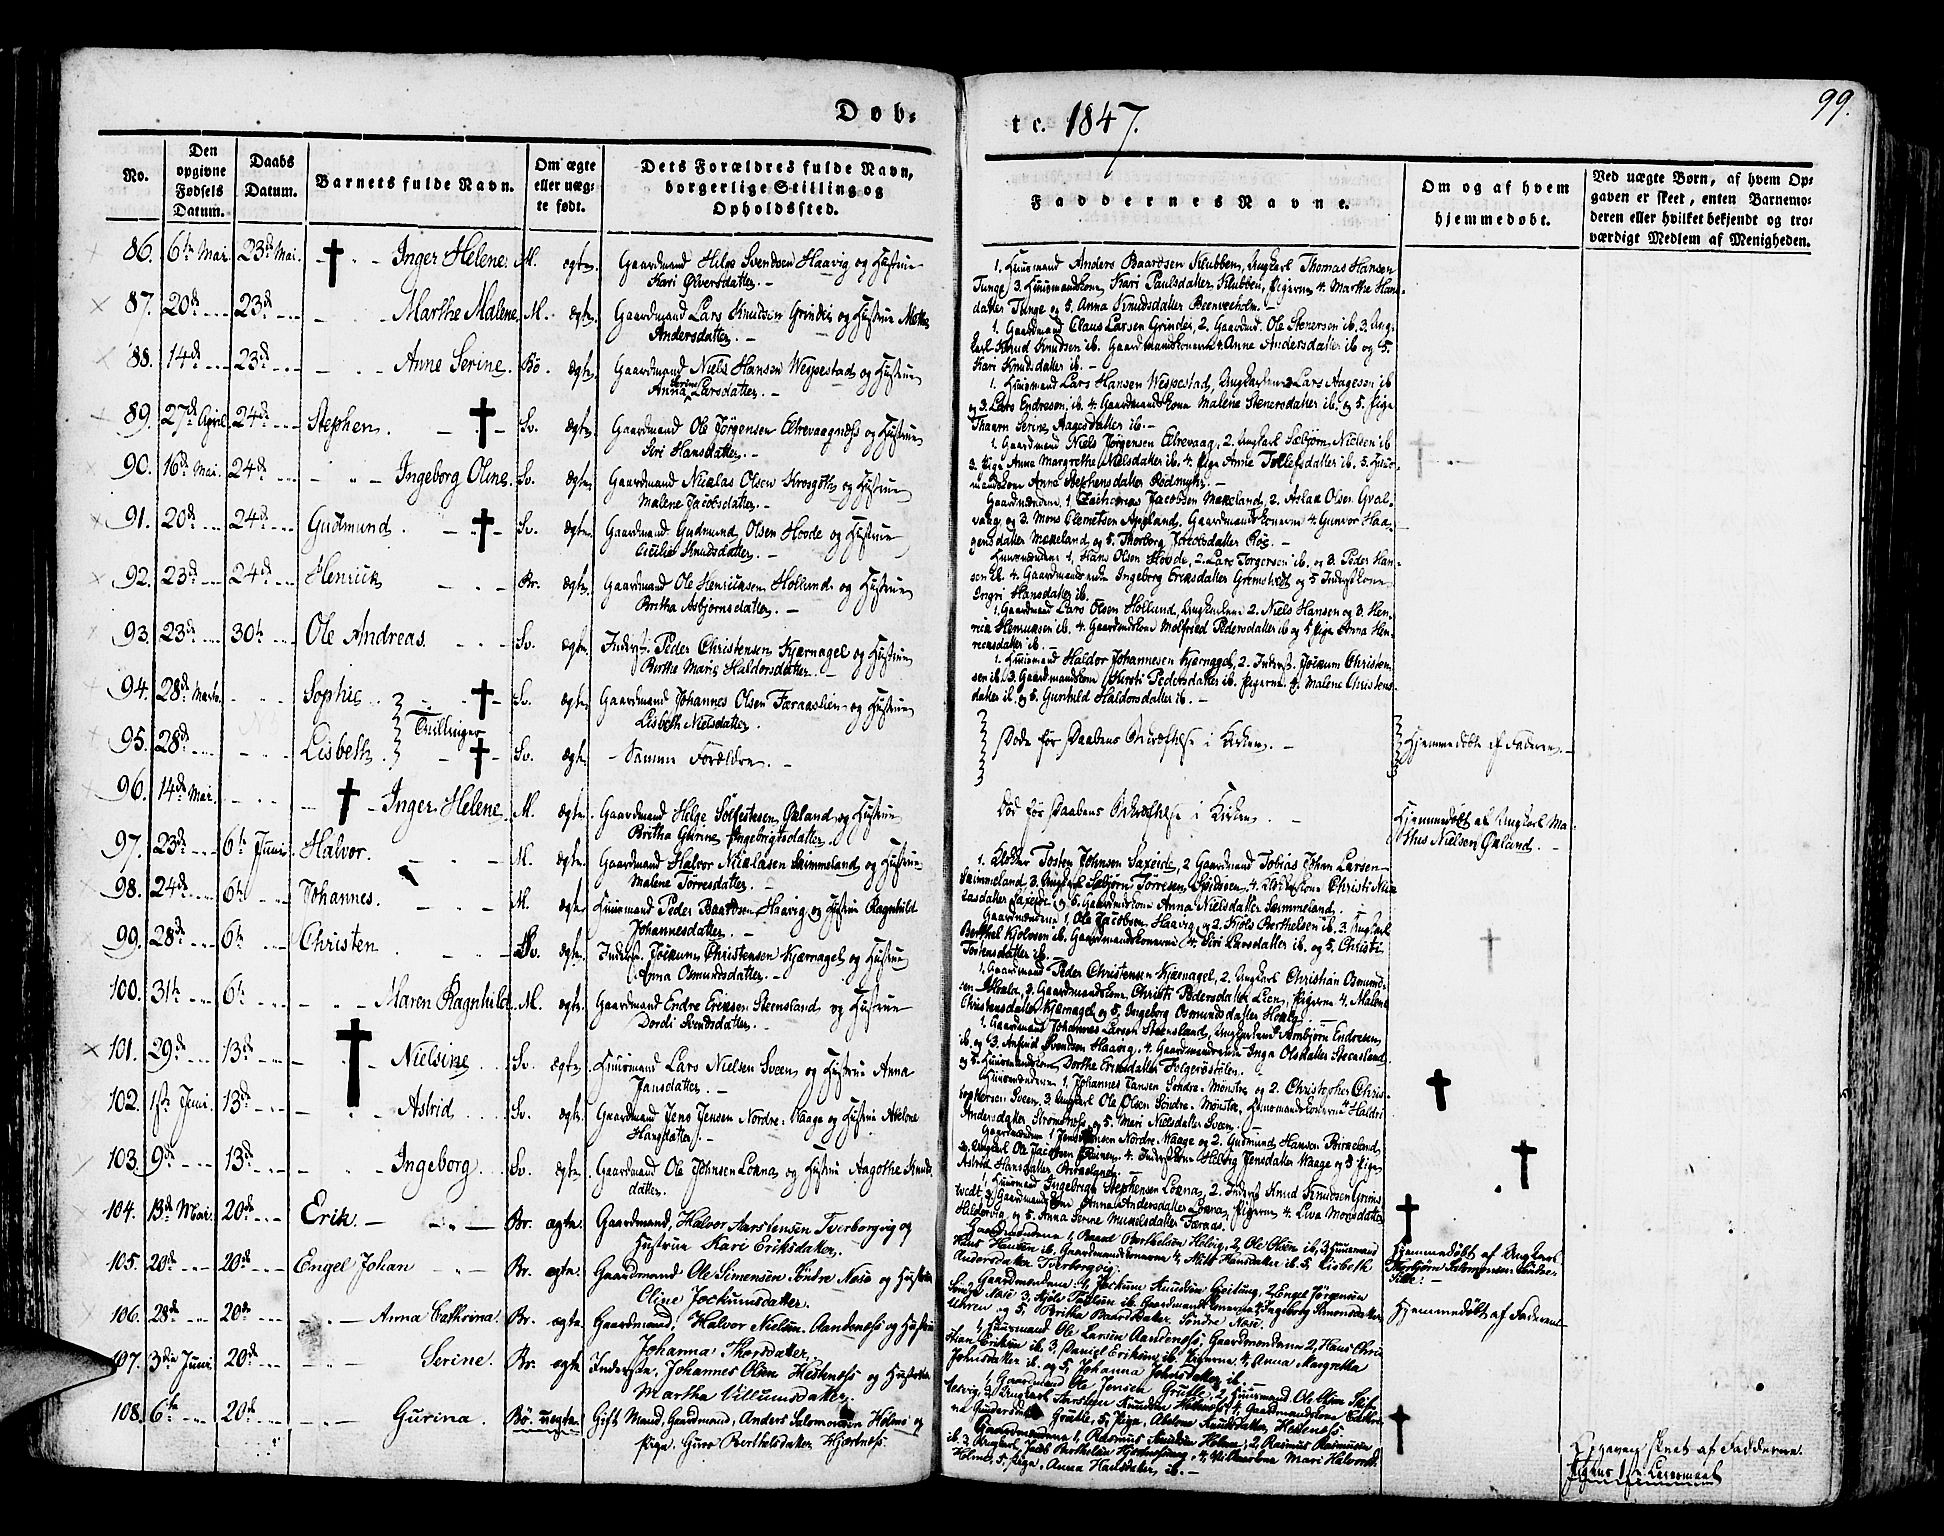 Døb-
te. 1847.
99.
No.
Den opgivne Fødsels Datum.
Daabs Datum.
Barnets fulde Navn.
Om ægte eller uæg-
te født.
Dets Forældres fulde Navn,
borgerlige Stilling og
Opholdssted.
Faddernes Navne.
Om og af hvem
hjemmedøbt.
Ved uægte Børn, af hvem Op-
gaven er skeet, enten Barnemo-
deren eller hvilket bekjendt og tro-
værdigt Medlem af Menigheden.
86. 6te Mai 23de Mai. Inger Helene. M. ægte. Gaardmand Helge Svendsen Haavig og Hustrue
Kari Øversdatter.
87. 20de 23de Marthe Malene M. ægte. Gaardmand Lars Knudsen Grindei og Hustrue Mette
Andersdatter.
88. 14de 23de Anne Serine. Bø. ægte. Gaardmand Niels Hansen Wespestad og Hustrue
Anna Serine Larsdatter.
89. 27de April 24de Stephen. Sv. ægte. Gaardmand Ole Jørgensen og Hustrue
Siri Hansdatter.
90. 16de Mai. 24de Ingeborg Oline. Sv. ægte. Gaardmand Nicolas Olsen og Hustrue
Malene Jacobsdatter.
91. 20de 24de Gudmund. Sv. ægte. Gaardmand Gudmund Olsen Hovde og Hustrue
Knudsdatter.
92. 23de 24de Henrick Br. ægte. Gaardmand Ole Henricksen Hollund og Hustrue
Britha Asbjørnsdatter.
93. 23de 30te Ole Andreas. Sv. ægte. Inderst Peder Christensen Kjærnagel og Hustrue
Birthe Marie Haldorsdatter.
94. 28de Marts. Sophie. Sv. ægte. Gaardmand Johannes Olsen Færaaslien og Hustrue
Lisbeth Nielsdatter.
Tvillinger
95. 28de Lisbeth. Sv. ægte. Samme Forældre.
96. 14de Mai. Inger Helene. M. ægte. Gaardmand Helge Solfestesen Øeland og Hustrue
Britha Gurine Ingebrigtsdatter.
97. 23de 6te Juni Halvor. M. ægte. Gaardmand Halvor Nicolasen Sæimmeland og Hustrue
Malene Torresdatter.
98. 24de 6te Johannes. M. ægte. Huusmand Peder Baardsen Haavig og Hustrue Ragnhild
Johannesdatter.
99. 28de 6te Christen Sv. ægte. Inderst Jockum Christensen Kjærnagel og Hustrue
Anna Osmundsdatter.
100. 31te 6te Maren Ragnhild. M. ægte. Gaardmand Endre Eriksen Steensland og Hustrue
Dordi Svendsdatter.
101. 29de 13de Nielsine Sv. ægte. Huusmand Lars Nielsen Sveen og Hustrue Anna
Jansdatter.
102. 1ste Juni. 13de Astrid Sv. ægte. Gaardmand Jens Jensen Nordre-Waage og Hustrue Abelone
Hansdatter.
103. 9de 13de Ingeborg Sv. ægte. Gaardmand Ole Johnsen Loxna og Hustrue Aagothe Knuds-
datter.
104. 13de Mai. 20de Erik. Br. ægte. Gaardmand, Halvor Aarstensen Tverborgvig og
Hustrue Kari Eriksdatter.
105. 20de 20de Engel Johan Br. ægte. Gaardmand Ole Simensen Søndre Nase og Hustrue
Oline Jockumsdatter.
106. 28de 20de Anna Cathrina. Br. ægte. Gaardmand, Halvor Nielsen Aandenæss og Hustrue
Johanna Thorsdatter.
107. 3die Juni 20de Serine. Br. ægte Inderste. Johannes Olsen Hestenæss og Hustrue
Martha Villumsdatter.
108. 6te 20de Gurina. Bø. uægte. Gift Mand, Gaardmand, Anders Salomonsen Holme og
Pige. Guro Berthelsdatter Hjærtnæss.
1. Huusmand Anders Baardsen Klubben, Ungkarl Thomas Hansen
Tunge, 3. Huusmandskone Kari Paulsdatter Klubben, Pigerne 4. Marthe Hans-
datter Tunge og 5. Anna Knudsdatter
1. Gaardmand Claus Larsen Grindei, 2. Gaardmd. Ole Stenersen ib. 3. Ung-
karl Knud Knudsen ib. Gaardmandskonerne 4. Anne Andersdatter ib. og 5.
Kari Knudsdatter ib.
1. Huusmand Lars Hansen Wespestad, Ungkarlene 2. Lars Aagesen ib
og 3. Lars Endresen ib. 4. Gaardmandskone Malene Stenersdatter ib. og 5. Pige
Serine Aagesdatter ib.
1. Gaardmand Niels Jørgensen 2. Ungkarl Sæbjørn Nielsen ib
3. Pige Anne Margrethe Nielsdatter ib. 4. Pige Anne Tollefsdatter ib. 5. Huus-
mandskone Anna Stephensdatter
Gaardmændene 1. Zacharias Jacobsen Mæeland, 2. Aslak Olsen Qval-
vaag og 3. Mons Clemetsen Gaardmandskonerne 4. Gunvor Haa-
gensdatter Mæeland og 5. Thorborg Jacobsdatter
Huusmændene 1. Hans Olsen Hovde, 2. Lars Torgersen ib. og 3. Peder Han-
sen ib. 4. Gaardmandsenke Ingeborg Eriksdatter og 5 Inderstkone
Ingri Hansdatter ib.
1. Gaardmand Lars Olsen Hollund, Ungkarlene 2. Niels Hansen og 3. Hen-
rick Henricksen ib. 4. Gaardmandskone Molfried Pedersdatter ib og 5 Pige Anna Hen-
ricksdatter ib.
1. Huusmand Haldor Johannesen Kjærnagel, 2. Inderst Jockum Christen-
sen ib. 3. Gaardmandskone Pedersdatter ib. Pigerne 4. Malene Christens-
datter ib og 5. Gunhild Haldorsdatter ib.
Døde før Daabens Bekræftelse i Kirken.
Hjemmedøbte af Faderen.
Død før Daabens Bekræftelse i Kirken.
Hjemmedøbt af Ungkarl Ma-
thus Nielsen Øeland.
1. Klokker Tosten Johnsen Saxeide, 2 Gaardmand Tobias Johan Larsen
3. Ungkarl Sæbjørn Torresen 4. Christi Nico-
lasdatter Saxeide og 5. Gaardmandskone Anna Nielsdatter
Gaardmændene 1. Ole Jacobsen Haavig og 2. Kjøls Berthelsen ib. 3. Ungkarl
Berthel Kjolvsen ib. Gaardmandskonerne 4. Siri Larsdatter ib. og 5. Christi
Tostensdatter ib.
1. Gaardmand Peder Christensen Kjærnagel, 2. Ungkarl Christian Osmund-
sen 3. Gaardmandskone Christi Pedersdatter Lien, Pigerne 4. Malene
Christensdatter Kjærnagel og 5. Ingeborg Osmundsdatter
1. Gaardmand Johannes Larsen Steensland, Ungkarlene 2. Arnbjørn Endresen
ib. og 3. Svendsen Haavig. 4. Gaardmandsenke Inga Olsdatter Steensland
og 5. Huusmandskone Dorthe Eriksdatter
Huusmændene 1. Johannes Jansen Søndre-Mønster og 2. Christopher Chris-
tophersen Sveen, 3. Ungkarl Ole Olsen Søndre-Mønster, Huusmandskonerne 4. Haldri
Andersdatter og 5. Mari Nielsdatter Sveen.
Gaardmændene 1. Jens Jensen Nordre-Waage og 2. Gudmund Hansen
3. Ungkarl Ole Jacobsen 4. Inderstkone Helvig Jensdatter Waage og 5 Pige
Astrid Hansdatter
1. Huusmand Ingebrigt Stephensen Loxna, 2. Inderst Knud Knudsen Grims-
tvedt, 3. Gaardmandskone Anna Andersdatter Loxna, Pigerne 4. Liva Monsdatter
og 5. Anna Serine Mickelsdatter Færaas.
Gaardmændene 1, Baard Berthelsen Helvig, 2, Ole Olsen ib, 3, Huusmand
Hans Hansen ib. Gaardmandskonerne 4, Hansdatter ib. 5, Lisbeth
Andersdatter Tverborgvig.
Hjemmedøbt af Ungkarl
Thorbjørn Salomonsen
Gaardmændene 1, Jockum Knudsen 2, Engel Jørgensen
Søndre Nase 3, Gaardmandskonerne 4, Ingeborg Simonsdatter
og 5, Britha Baardsdatter, Søndre Nase.
Hjemmedøbt af Faderen
1, Huusmand Ole Larsen Aandenæss. Gaardmændene 2, Hans Chris-
tian Eriksen ib 3, Daniel Eriksen ib. Pigerne 4, Anna Margretha
Johnsdatter ib. og 5, Johanna Johnsdatter ib.
1, Gaardmand Ole Jensen 2, Huusmand Ole Olsen
3, Ungkarl Aarsten Knudsen Hestenæss 4, Gaardmandskone
Gundersdatter 5, Pige, Abelone Knudsdatter, Hestenæss.
Gaardmændene 1, Rasmus Knudsen Holme, 2, Rasmus Rasmusen
ib. 3, Ungkarl, Jacob Berthelsen 4, Mari Halvorsd.
Holme, 5, Pige. Anna Hansdatter ib.
Opgaven skeet af Fadderne.
Pigens 1ste Leiermaal